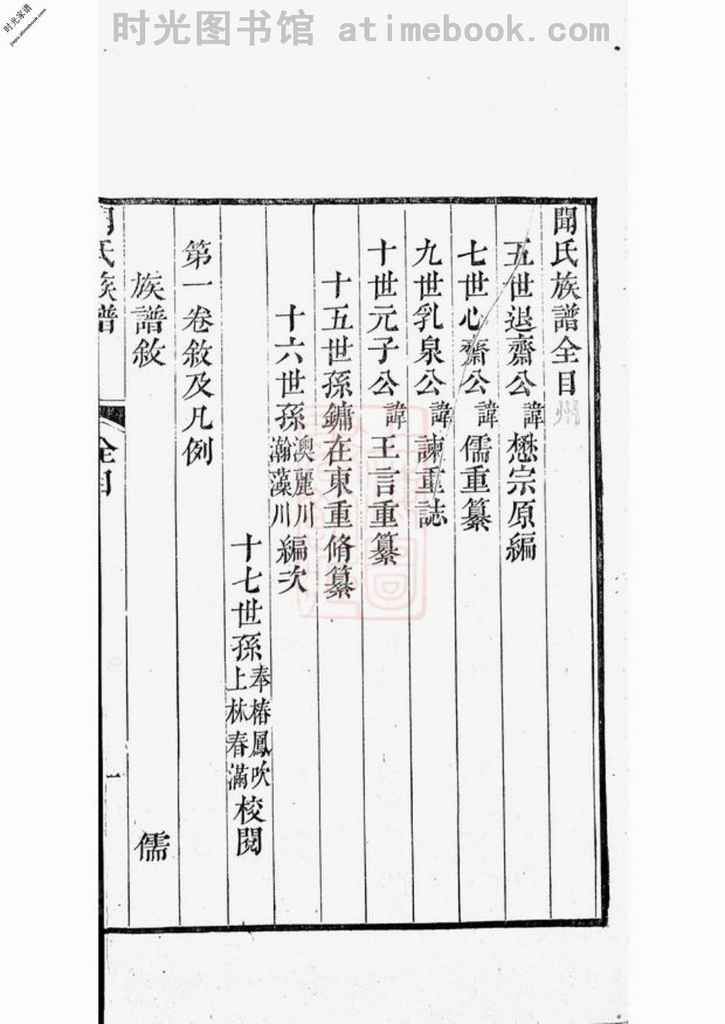 时光图书馆 atimebook.com
时光家谱
聞氏族譜全目
五世退齋公諱懋宗原編
七世心齋公諱儒重纂
九世乳泉公諱諫重誌
十世元子公諱王言重纂
十五世孫鏞在東重脩纂
十六世孫澳麗川瀚藻川編次
十七世孫奉椿鳳吹上林春滿校閱
第一卷敘及凡例
族譜敘 儒
聞氏族譜 全目 一